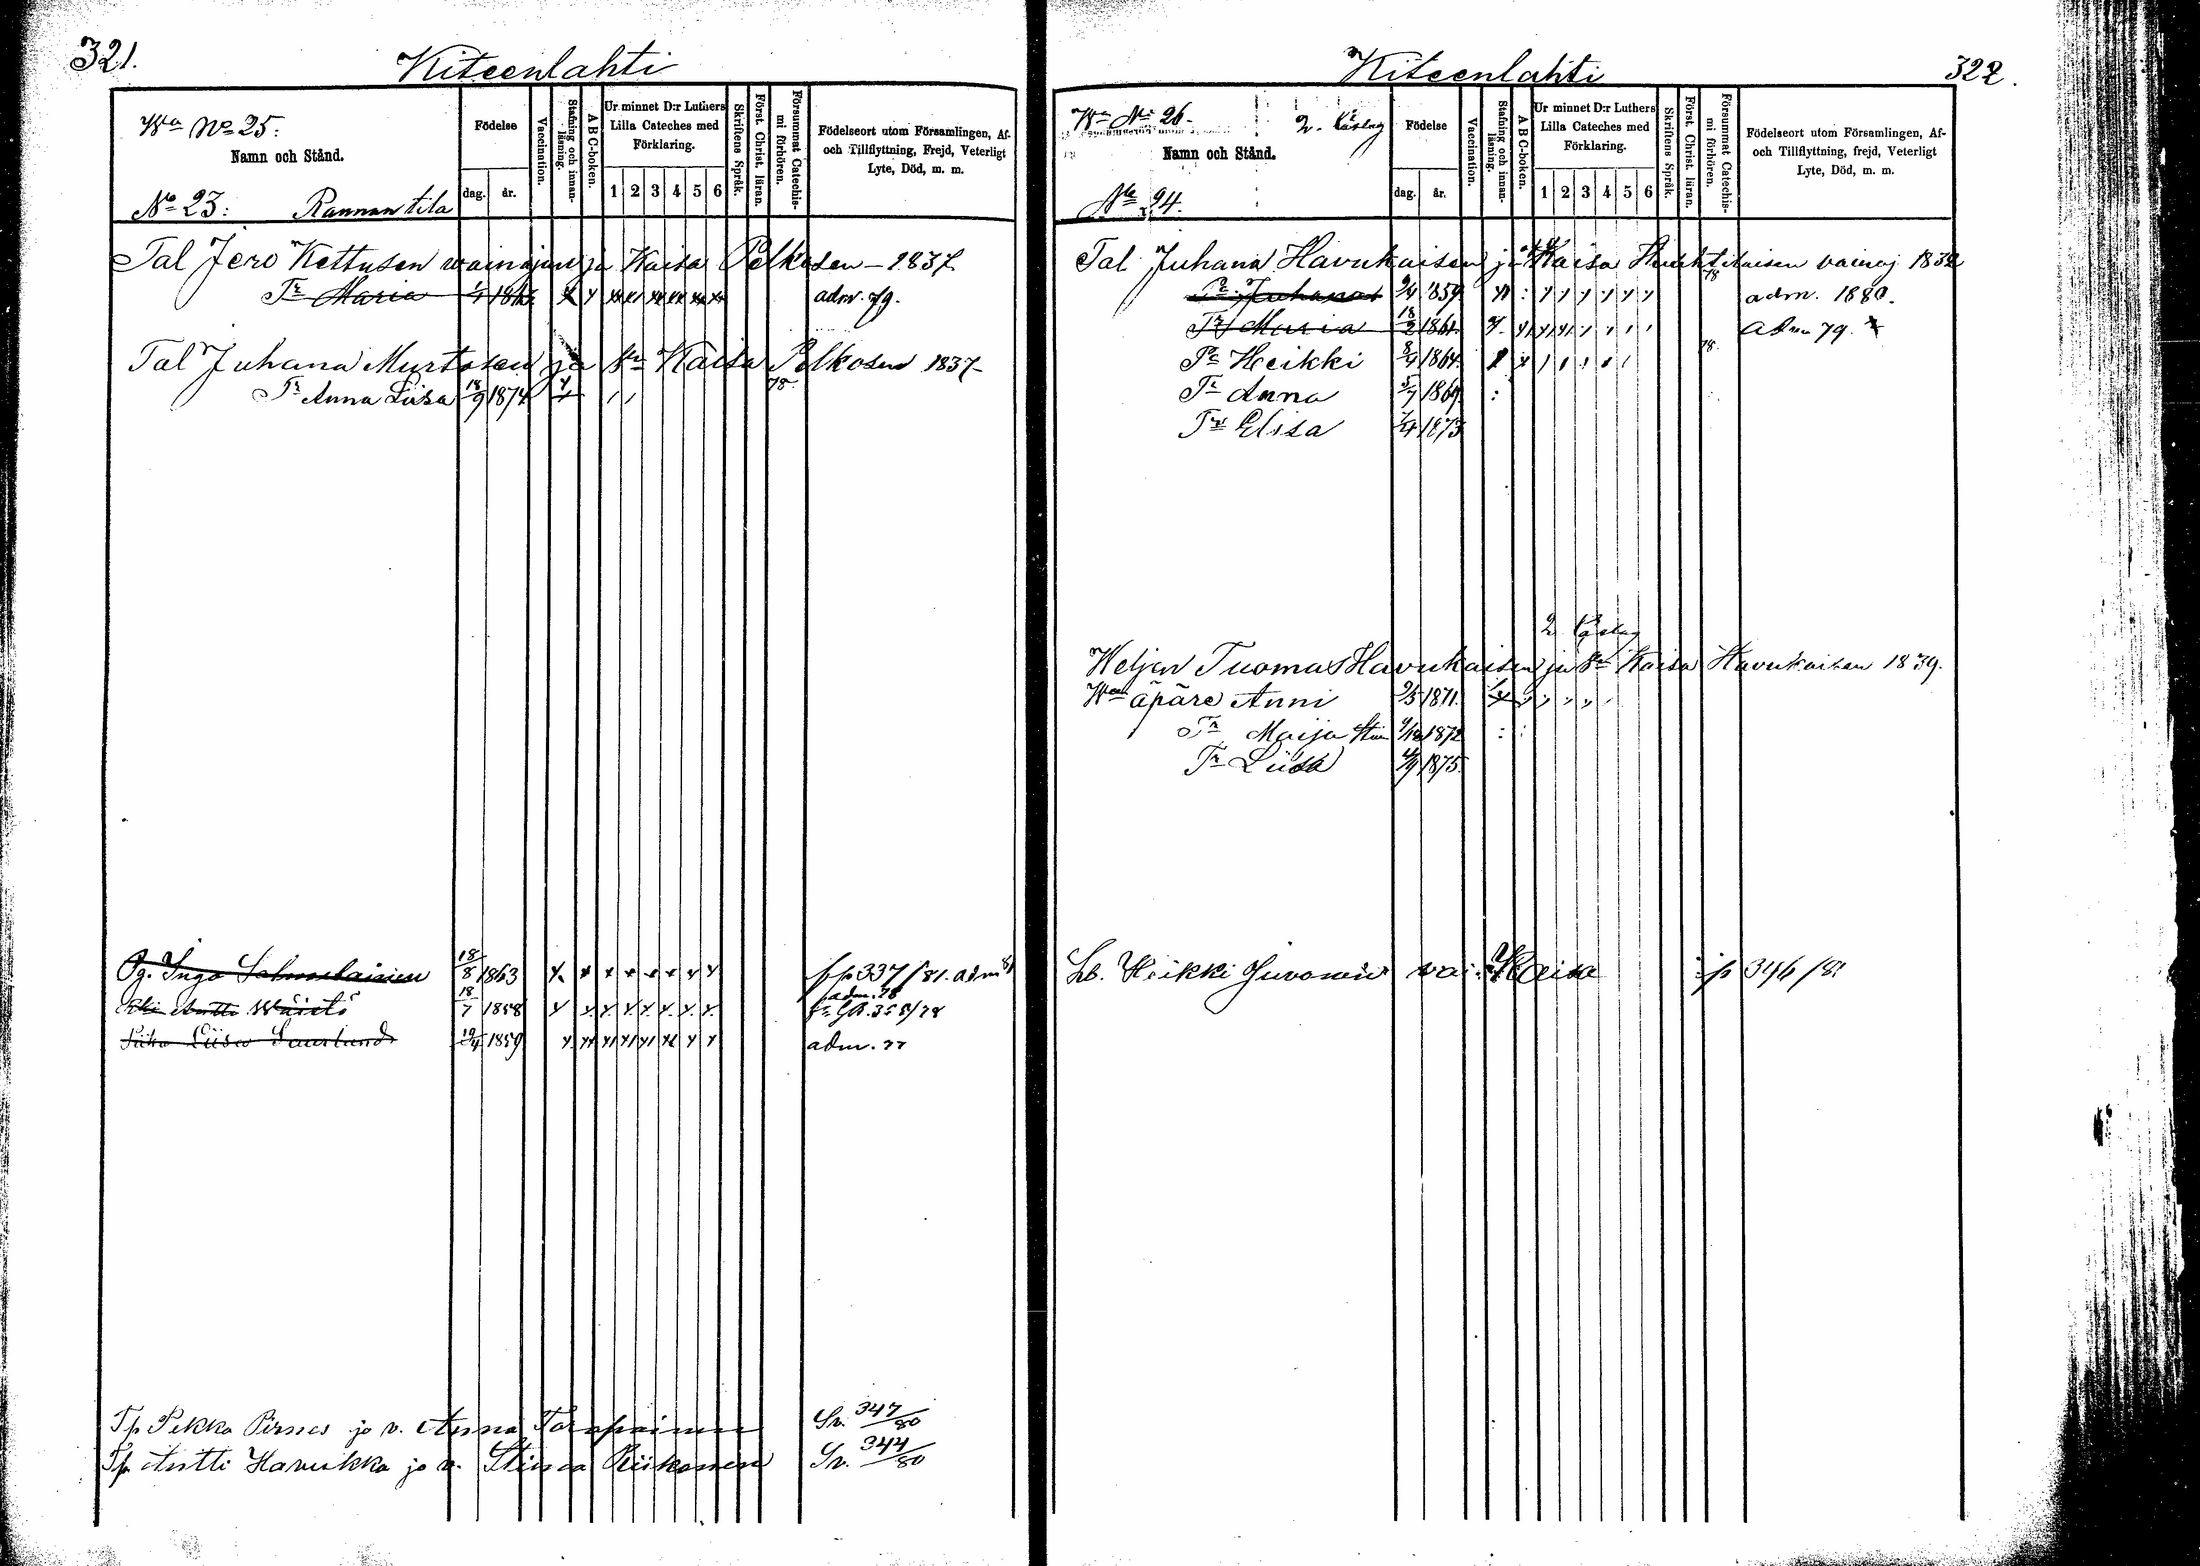 321.
Kiteenlahti
Wa No 25:
Namn och Stånd.
No 23: Rannan tila
Födelse
dag. år.
Vaccination.
Stafning och innanläsning.
A B C-boken.
Ur minnet D:r Luthers Lilla Cateches med Förklaring.
1 2 3 4 5 6
Skriftens Språk.
Först. Christ. läran.
Försummat Catechismi förhören.
Födelseort utom Församlingen, Af- och Tillflyttning, Frejd, Veterligt Lyte, Död, m. m.
Tal Jero Kettusen wainajan ja Kaisa Pelkosen – 1837
Tr Maria adm. 79.
Tal Juhana Murtosen ja Kaisa Pelkosen 1837
Tr Anna Liisa 18/9 1874 78
Pg. Inga 18/8 1863 337/81. adm 81
Antti Wäistö 18/7 1858 adm. 78
Liisa 1859 adm. 77
Tp Pekka Pirnes ja v. Anna Sv. 347/80
Tp Antti Havukka ja v. Stiina Riikonen Sv. 344/80
Kiteenlahti
322.
Wa No 26.
2. Käslag
Namn och Stånd.
No 94.
Födelse
dag. år.
Vaccination.
Stafning och innanläsning.
A B C-boken.
Ur minnet D:r Luthers Lilla Cateches med Förklaring.
1 2 3 4 5 6
Skriftens Språk.
Först. Christ. läran.
Försummat Catechismi förhören.
Födelseort utom Församlingen, Af- och Tillflyttning, frejd, Veterligt Lyte, Död, m. m.
Tal Juhana Havukaisen ja Kaisa vainaj 1832
Pa Juhana 1859 78 adm. 1880.
Tr Maria 18/2 1861 adm 79.
Pa Heikki 8/4 1864 78.
Tr Anna 5/7 1869
Tr Elisa 1873
2 Käslag
Weljen Tuomas Havukaisen ja Kaisa Havukaisen 1839.
äpäre Anni 1871.
Tr Maija 1872
Tr Liisa 1875.
Lb. Heikki Juvonen vai: Kaisa 346/81